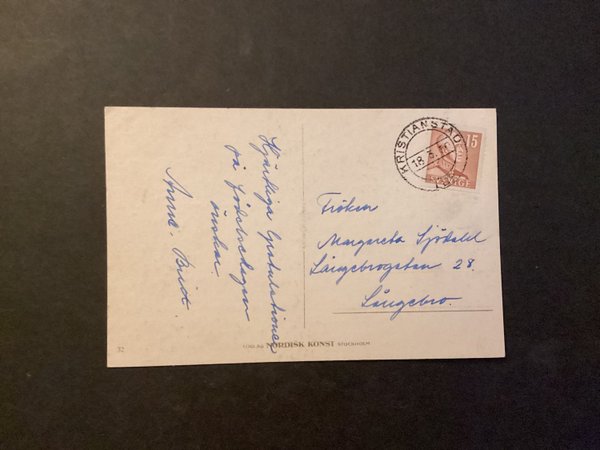 Hjärtliga Gratulationer
på födelsedagen
önskar
Anna-Brid.
KRISTIANSTAD
18.3.
15
SVERIGE
Fröken
Margareta Sjödahl
Långebrogatan 28.
Långebro.
32
NORDISK KONST STOCKHOLM